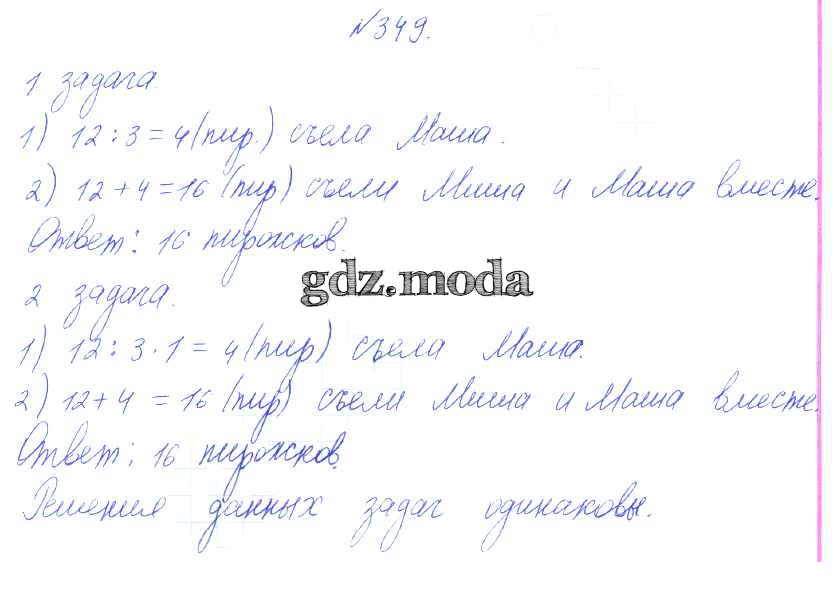 №349.
1 задача.
1) 12:3=4(пир.) съела Маша.
2) 12+4=16 (пир) съели Миша и Маша вместе.
Ответ: 16 пирожков.
gdz.moda
2 задача.
1) 12:3·1=4(пир) съела Маша.
2) 12+4=16(пир) съели Миша и Маша вместе.
Ответ: 16 пирожков.
Решения данных задач одинаковы.